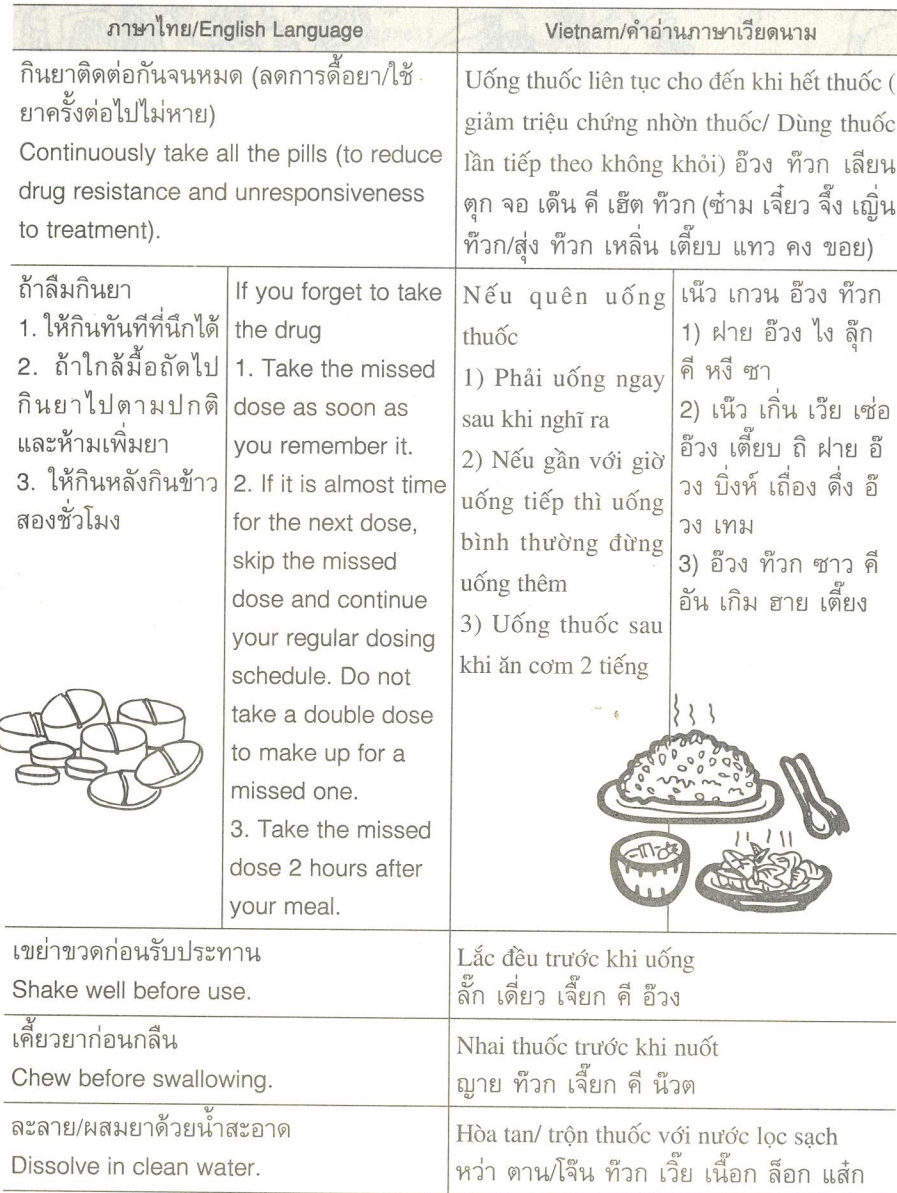 ภาษาไทย/English Language
Vietnam/คำอ่านภาษาเวียดนาม
กินยาติดต่อกันจนหมด (ลดการดื้อยา/ใช้
ยาครั้งต่อไปไม่หาย)
Continuously take all the pills (to reduce
drug resistance and unresponsiveness
to treatment).
Uống thuốc liên tục cho đến khi hết thuốc (
giảm triệu chứng nhờn thuốc/ Dùng thuốc
lần tiếp theo không khỏi) อ๊วง ท๊วก เลียน
ตุก จอ เด๊น คี เฮ๊ต ท๊วก (ซ๋าม เจี๋ยว จึ๊ง เญิ่น
ท๊วก/สุ่ง ท๊วก เหลิ่น เตี๊ยบ แทว คง ขอย)
ถ้าลืมกินยา
1. ให้กินทันทีที่นึกได้
2. ถ้าใกล้มื้อถัดไป
กินยาไปตามปกติ
และห้ามเพิ่มยา
3. ให้กินหลังกินข้าว
สองชั่วโมง
If you forget to take
the drug
1. Take the missed
dose as soon as
you remember it.
2. If it is almost time
for the next dose,
skip the missed
dose and continue
your regular dosing
schedule. Do not
take a double dose
to make up for a
missed one.
3. Take the missed
dose 2 hours after
your meal.
Nếu quên uống
thuốc
1) Phải uống ngay
sau khi nghĩ ra
2) Nếu gần với giờ
uống tiếp thì uống
bình thường đừng
uống thêm
3) Uống thuốc sau
khi ăn cơm 2 tiếng
เน๊ว เกวน อ๊วง ท๊วก
1) ฝาย อ๊วง ไง ลุ๊ก
คี หงี ซา
2) เน๊ว เกิ่น เว๊ย เซ่อ
อ๊วง เตี๊ยบ ถิ ฝาย อ๊
วง บิ่งห์ เถื่อง ดึ่ง อ๊
วง เทม
3) อ๊วง ท๊วก ซาว คี
อัน เกิม ฮาย เตี๊ยง
เขย่าขวดก่อนรับประทาน
Shake well before use.
Lắc đều trước khi uống
ลั๊ก เดี่ยว เจื๊ยก คี อ๊วง
เคี้ยวยาก่อนกลืน
Chew before swallowing.
Nhai thuốc trước khi nuốt
ญาย ท๊วก เจื๊ยก คี น๊วต
ละลาย/ผสมยาด้วยน้ำสะอาด
Dissolve in clean water.
Hòa tan/ trộn thuốc với nước lọc sạch
หว่า ตาน/โจ๊น ท๊วก เวิ๊ย เนื๊อก ล็อก แส๋ก